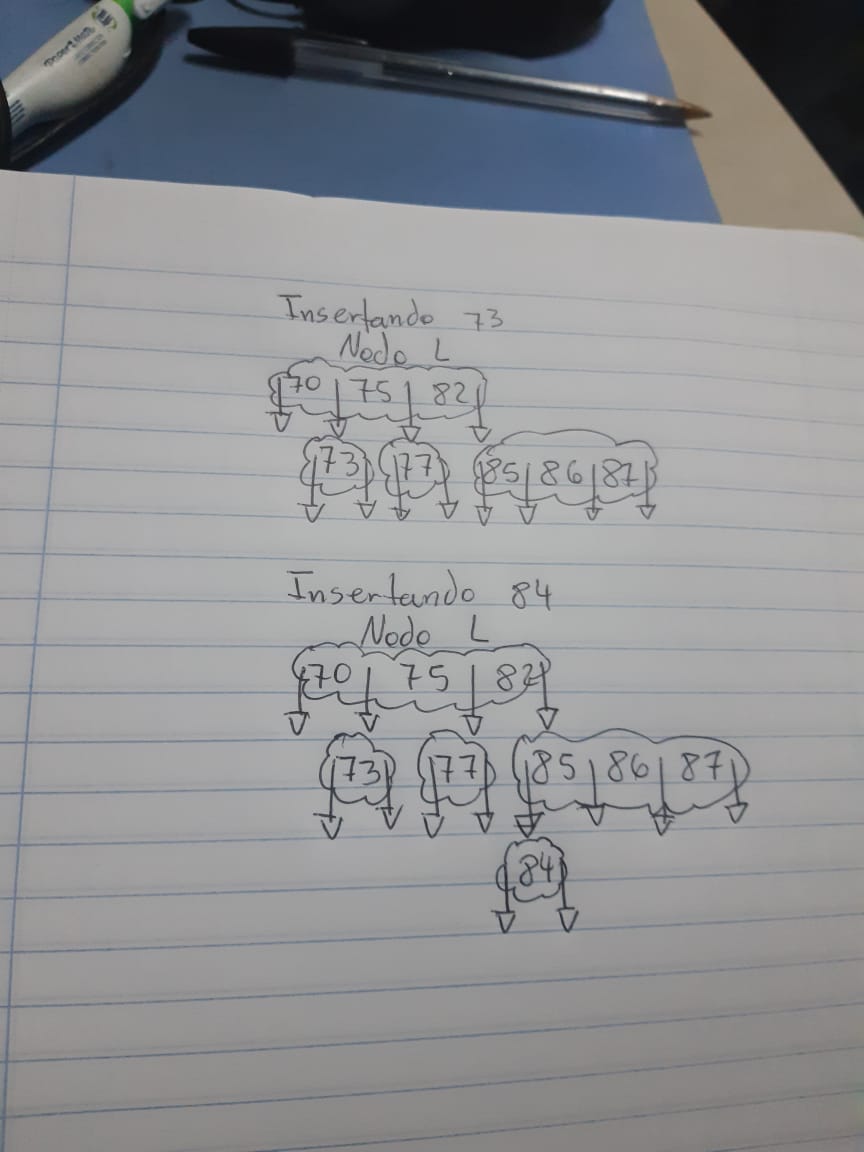 Paper Mate
Insertando 73
Nodo L
70 75 82
73 77 85 86 87
Insertando 84
Nodo L
70 75 82
73 77 85 86 87
84